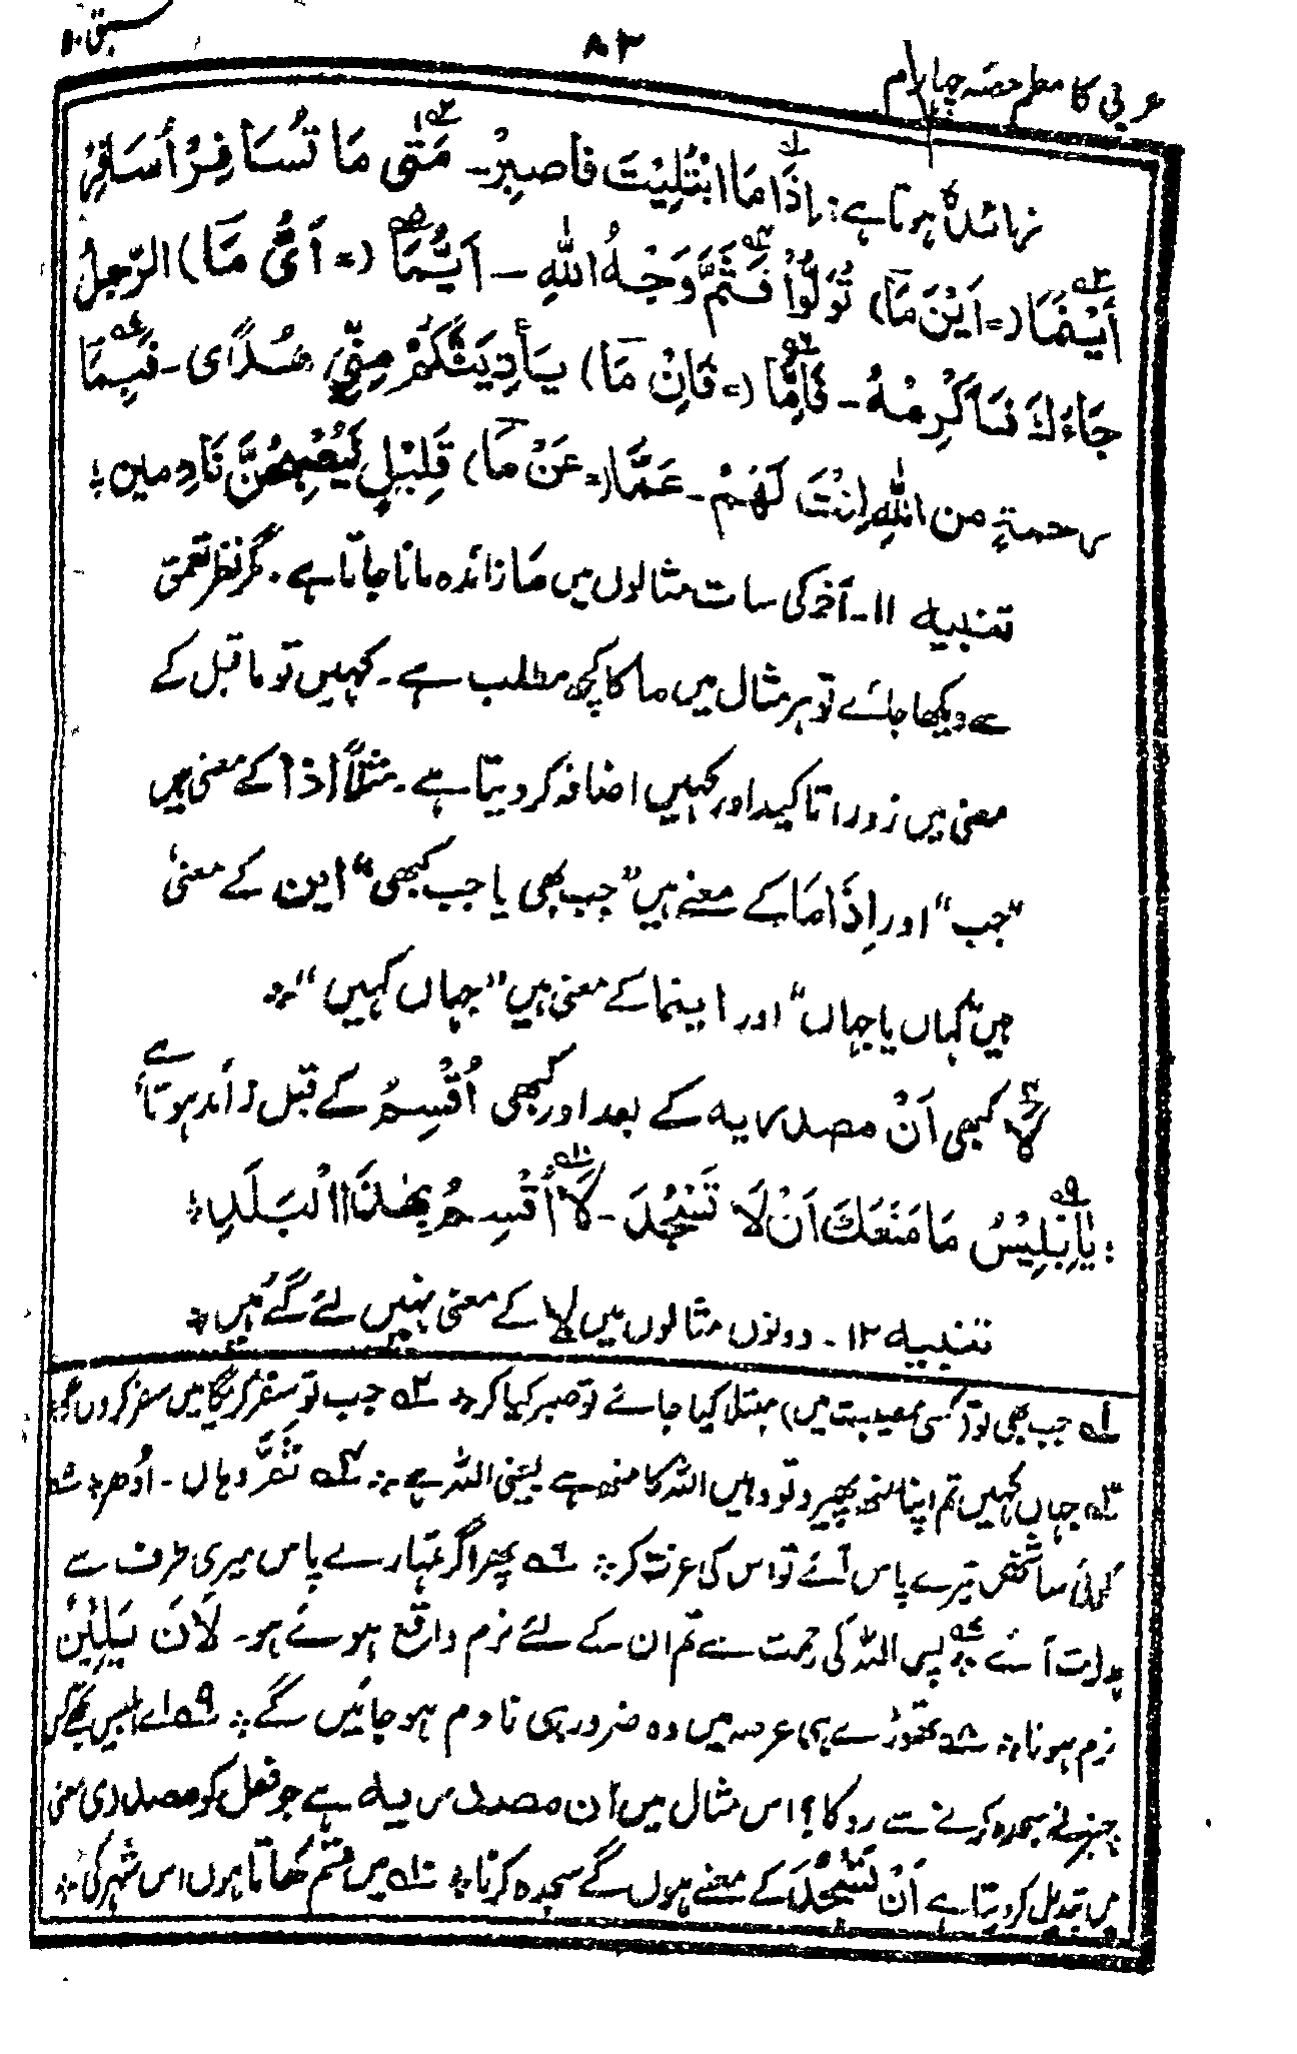 عربی کا معلم حصّہ چہارم
۸۳
سبق ۵۰
زائدہ ہوتا ہے: اِذَا مَا ابْتُلِيْتَ فَاصبِرْ۔ مَتٰى مَا تُسَافِرْ أُسَافِرْ
أَيْنَمَا (= اَيْنَ مَا) تُوَلُّوْا فَثَمَّ وَجْهُ اللهِ – اَيُّمَا (= اَیُّ مَا) الرّجلُ
جَاءَكَ فَاَكْرِمْهُ۔ فَاِمَّا (= فَاِنْ مَا) يَأْتِيَنَّكُمْ مِنِّي هُدًى۔ فَبِمَا
رحمةٍ من اللهِ لِنْتَ لَهُمْ۔ عَمَّا (= عَنْ مَا) قَلِيْلٍ لَيُصْبِحُنَّ نَادِمين ؛
تنبیہ ۱۱۔ آخر کی سات مثالوں میں مَا زائدہ مانا جاتا ہے۔ مگر نظرِ تعمّق
سے دیکھا جائے تو ہر مثال میں ما کا کچھ مطلب ہے۔ کہیں تو ماقبل کے
معنی میں زور اتاکید اور کہیں اضافہ کر دیتا ہے۔ مثلاً اذا کے معنی ہیں
”جب“ اور اِذَا مَا کے معنے ہیں ”جب بھی یا جب کبھی“ این کے معنیٰ
ہیں ”کہاں یا جہاں“ اور اینما کے معنی ہیں ”جہاں کہیں“؛
لَا کبھی اَنْ مصدریہ کے بعد اور کبھی اُقْسِمُ کے قبل زائد ہوتا ہے
: يٰاِبْلِيْسُ مَا مَنَعَكَ اَنْ لَا تَسْجُدَ ۔ لَا اُقْسِمُ بِهٰذَا الْبَلَدِ ؛
تنبیہ ۱۲۔ دونوں مثالوں میں لا کے معنی نہیں لئے گئے ہیں؛
۱ جب بھی تو (کسی مصیبت میں) مبتلا کیا جائے تو صبر کیا کر؛ ۲ جب تو سفر کریگا میں سفر کروں گا؛
۳ جہاں کہیں تم اپنا منھ پھیرو تو وہیں اللہ کا منھ ہے یعنی اللہ ہے؛ ۴ ثَمَّ وہاں۔ اُدھر؛ ۵
کوئی سا شخص تیرے پاس آئے تو اس کی عزت کر؛ ۶ پھر اگر تمہارے پاس میری طرف سے
ہدایت آئے ۷ پس اللہ کی رحمت سے تم ان کے لئے نرم واقع ہوئے ہو۔ لَانَ يَلِيْنُ
نرم ہونا؛ ۸ تھوڑے ہی عرصہ میں وہ ضرور ہی نادم ہو جائیں گے؛ ۹ اے ابلیس تجھے کس
چیز نے سجدہ کرنے سے روکا؟ اس مثال میں ان مصدریہ ہے جو فعل کو مصدری معنی
میں تبدیل کر دیتا ہے اَنْ تَسْجُدَ کے معنے ہوں گے سجدہ کرنا؛ ۱۰ میں قسم کھاتا ہوں اس شہر کی؛